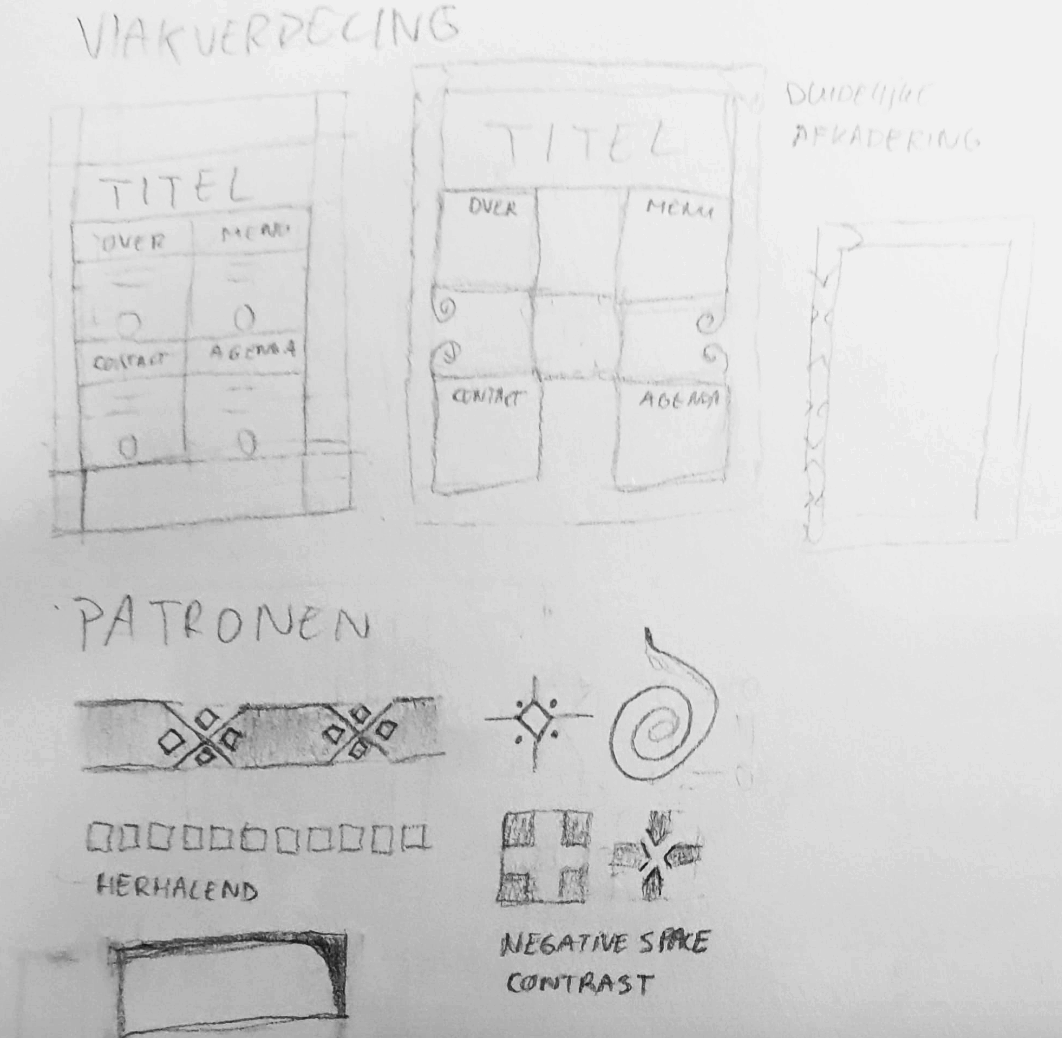 VlAKVERDELING
TITEL
OVER MENU
CONTACT AGENDA
TITEL
OVER MENU
CONTACT AGENDA
DUIDELIJKE
AFKADERING
PATRONEN
HERHALEND
NEGATIVE SPACE
CONTRAST